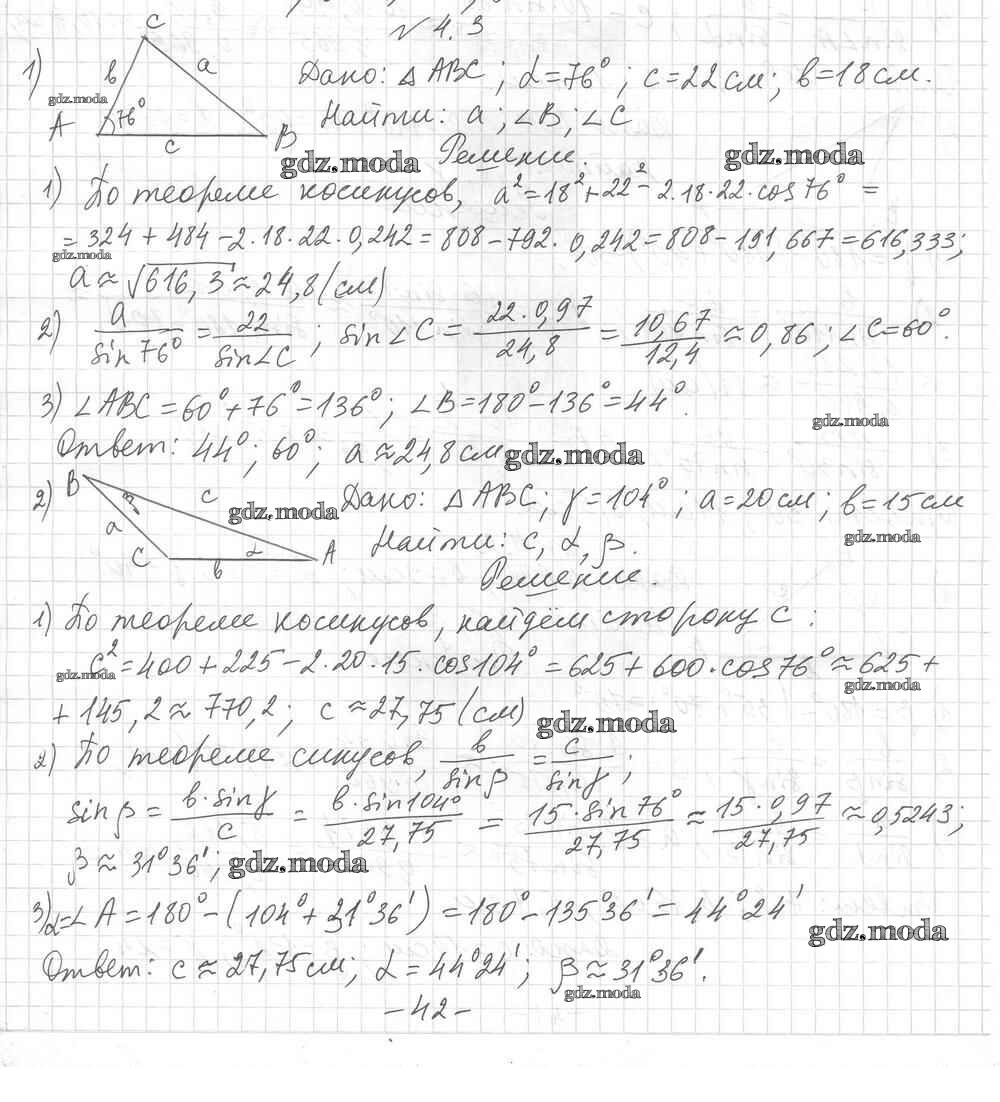 № 4.3
1)
C
b a
gdz.moda
A 76° B
c
Дано: △ABC; α=76°; c=22см; b=18см.
Найти: a; ∠B; ∠C
gdz.moda Решение. gdz.moda
1) По теореме косинусов, a²=18²+22²-2·18·22·cos76° =
= 324 + 484 - 2·18·22·0,242 = 808 - 792·0,242 = 808 - 191,667 = 616,333;
gdz.moda
a ≈ √616,3 ≈ 24,8 (см)
2) a/sin76° = 22/sin∠C; sin∠C = 22·0,97/24,8 = 10,67/12,4 ≈ 0,86; ∠C=60°.
3) ∠ABC = 60°+76°=136°; ∠B=180°-136°=44°.
gdz.moda
Ответ: 44°; 60°; a≈24,8см gdz.moda
2)
B
β c
a
gdz.moda
C α A
b
Дано: △ABC; γ=104°; a=20см; b=15см
gdz.moda
Найти: c, α, β.
Решение.
1) По теореме косинусов, найдём сторону c:
c² = 400 + 225 - 2·20·15·cos104° = 625 + 600·cos76° ≈ 625 +
gdz.moda gdz.moda
+ 145,2 ≈ 770,2; c ≈ 27,75 (см) gdz.moda
2) По теореме синусов, b/sinβ = c/sinγ;
sinβ = b·sinγ/c = b·sin104°/27,75 = 15·sin76°/27,75 ≈ 15·0,97/27,75 ≈ 0,5243;
β ≈ 31°36'; gdz.moda
3) α=∠A = 180° - (104° + 31°36') = 180° - 135°36' = 44°24'
gdz.moda
Ответ: c ≈ 27,75см; α = 44°24'; β ≈ 31°36'.
gdz.moda
- 42 -